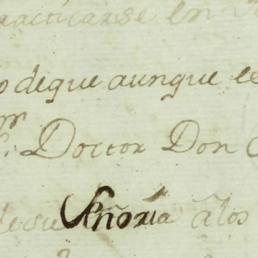 practicarse en
o de que aunque
Doctor Don
de su Señoria a los